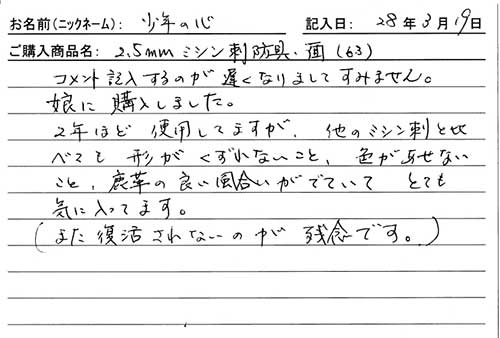 お名前(ニックネーム): 少年の心 記入日: 28年3月19日
ご購入商品名: 2.5mmミシン刺防具・面(63)
コメント記入するのが遅くなりましてすみません。
娘に購入しました。
2年ほど使用してますが、他のミシン刺と比
べても形がくずれないこと、色があせない
こと、鹿革の良い風合いがでていてとても
気に入ってます。
(また復活されないのが残念です。)